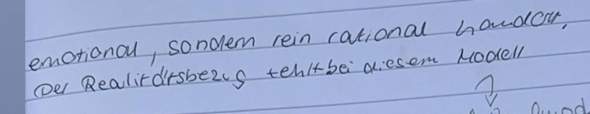 emotional, sondern rein rational handelt.
Der Realitätsbezug fehlt bei diesem Modell